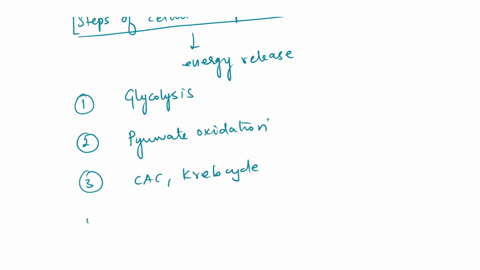 Steps of
energy release
1 Glycolysis
2 Pyruvate oxidation
3 CAC, Krebcycle